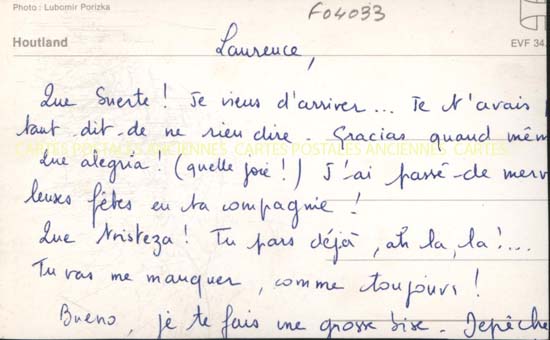 Photo : Lubomir Porizka
F04033
Houtland
EVF 34.
Laurence,
Que Suerte ! Je viens d'arriver... Je t'avais
tant-dit-de ne rien dire - Gracias quand mêm
CARTES POSTALES ANCIENNES CARTES POSTALES ANCIENNES CARTES
Que alegria ! (quelle joie !) J'ai passé-de merv
leuses fêtes en ta compagnie !
Que tristeza ! Tu pars déjà, ah la, la !...
Tu vas me manquer, comme toujours !
Bueno, je te fais une grosse bise - Depêche